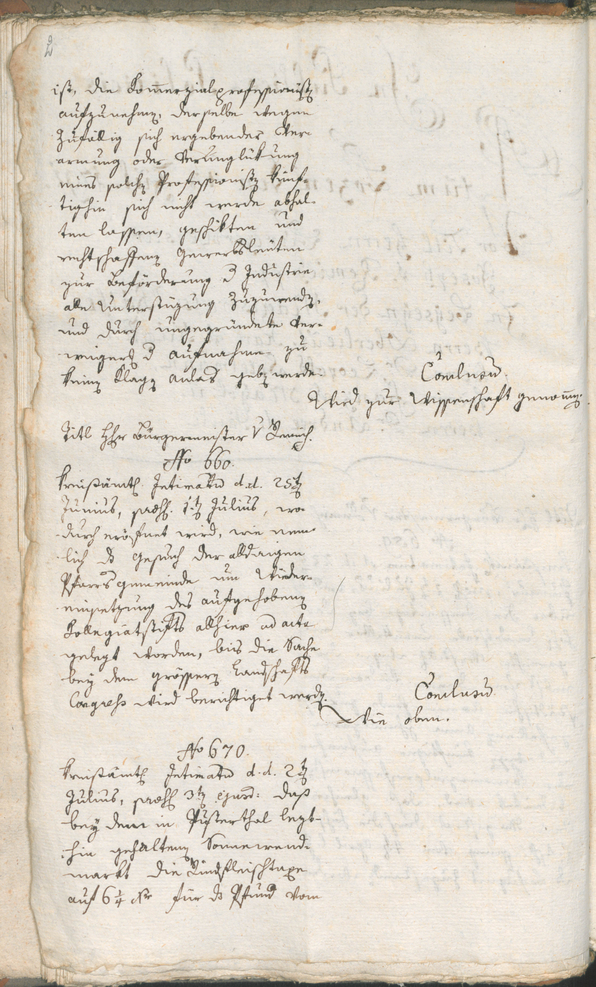 2
ist, die Kommerzialprofessionistn
aufzunehmen, derselbe wegen
zufällig sich ergebender Ver-
armung oder Verunglükung
eines solchn Professionistn künf-
tighin sich nicht werde abhal-
ten lassen, geschikten und
rechtschaffenen Gewerbsleuten
zur Beförderung d Industrie
alle Unterstüzung zuzuwendn,
und durch ungegründete Ver-
weigerg d Aufnahme zu
keinen Klagn anlas gebn werde.
Conclusum.
Wird zur Wissenschaft genomen.
Titl Hr Bürgermeister v
No 660.
Kreisämtl. Intimatum d.d. 28tn
Junius, praes. 1tn Julius, wo-
durch eröfnet wird, wie nem-
lich ds Gesuch der alldaigen
Pfarrsgemeinde um Wieder-
einsetzung des aufgehobenen
Kollegiatstifts allhier ad acta
gelegt worden, bis die Sache
bey dem grössern Landschafts
Congress wird berichtiget werdn.
Conclusum
Wie oben.
No 670.
Kreisämtl. Intimatum d.d. 2tn
Julius, praes. 3tn ejusd: daß
bey dem in Pusterthal lezt-
hin gehaltenen Sonnewend-
markt die Rindfleischtaxe
auf 6 1/4 kr für ds Pfund vom